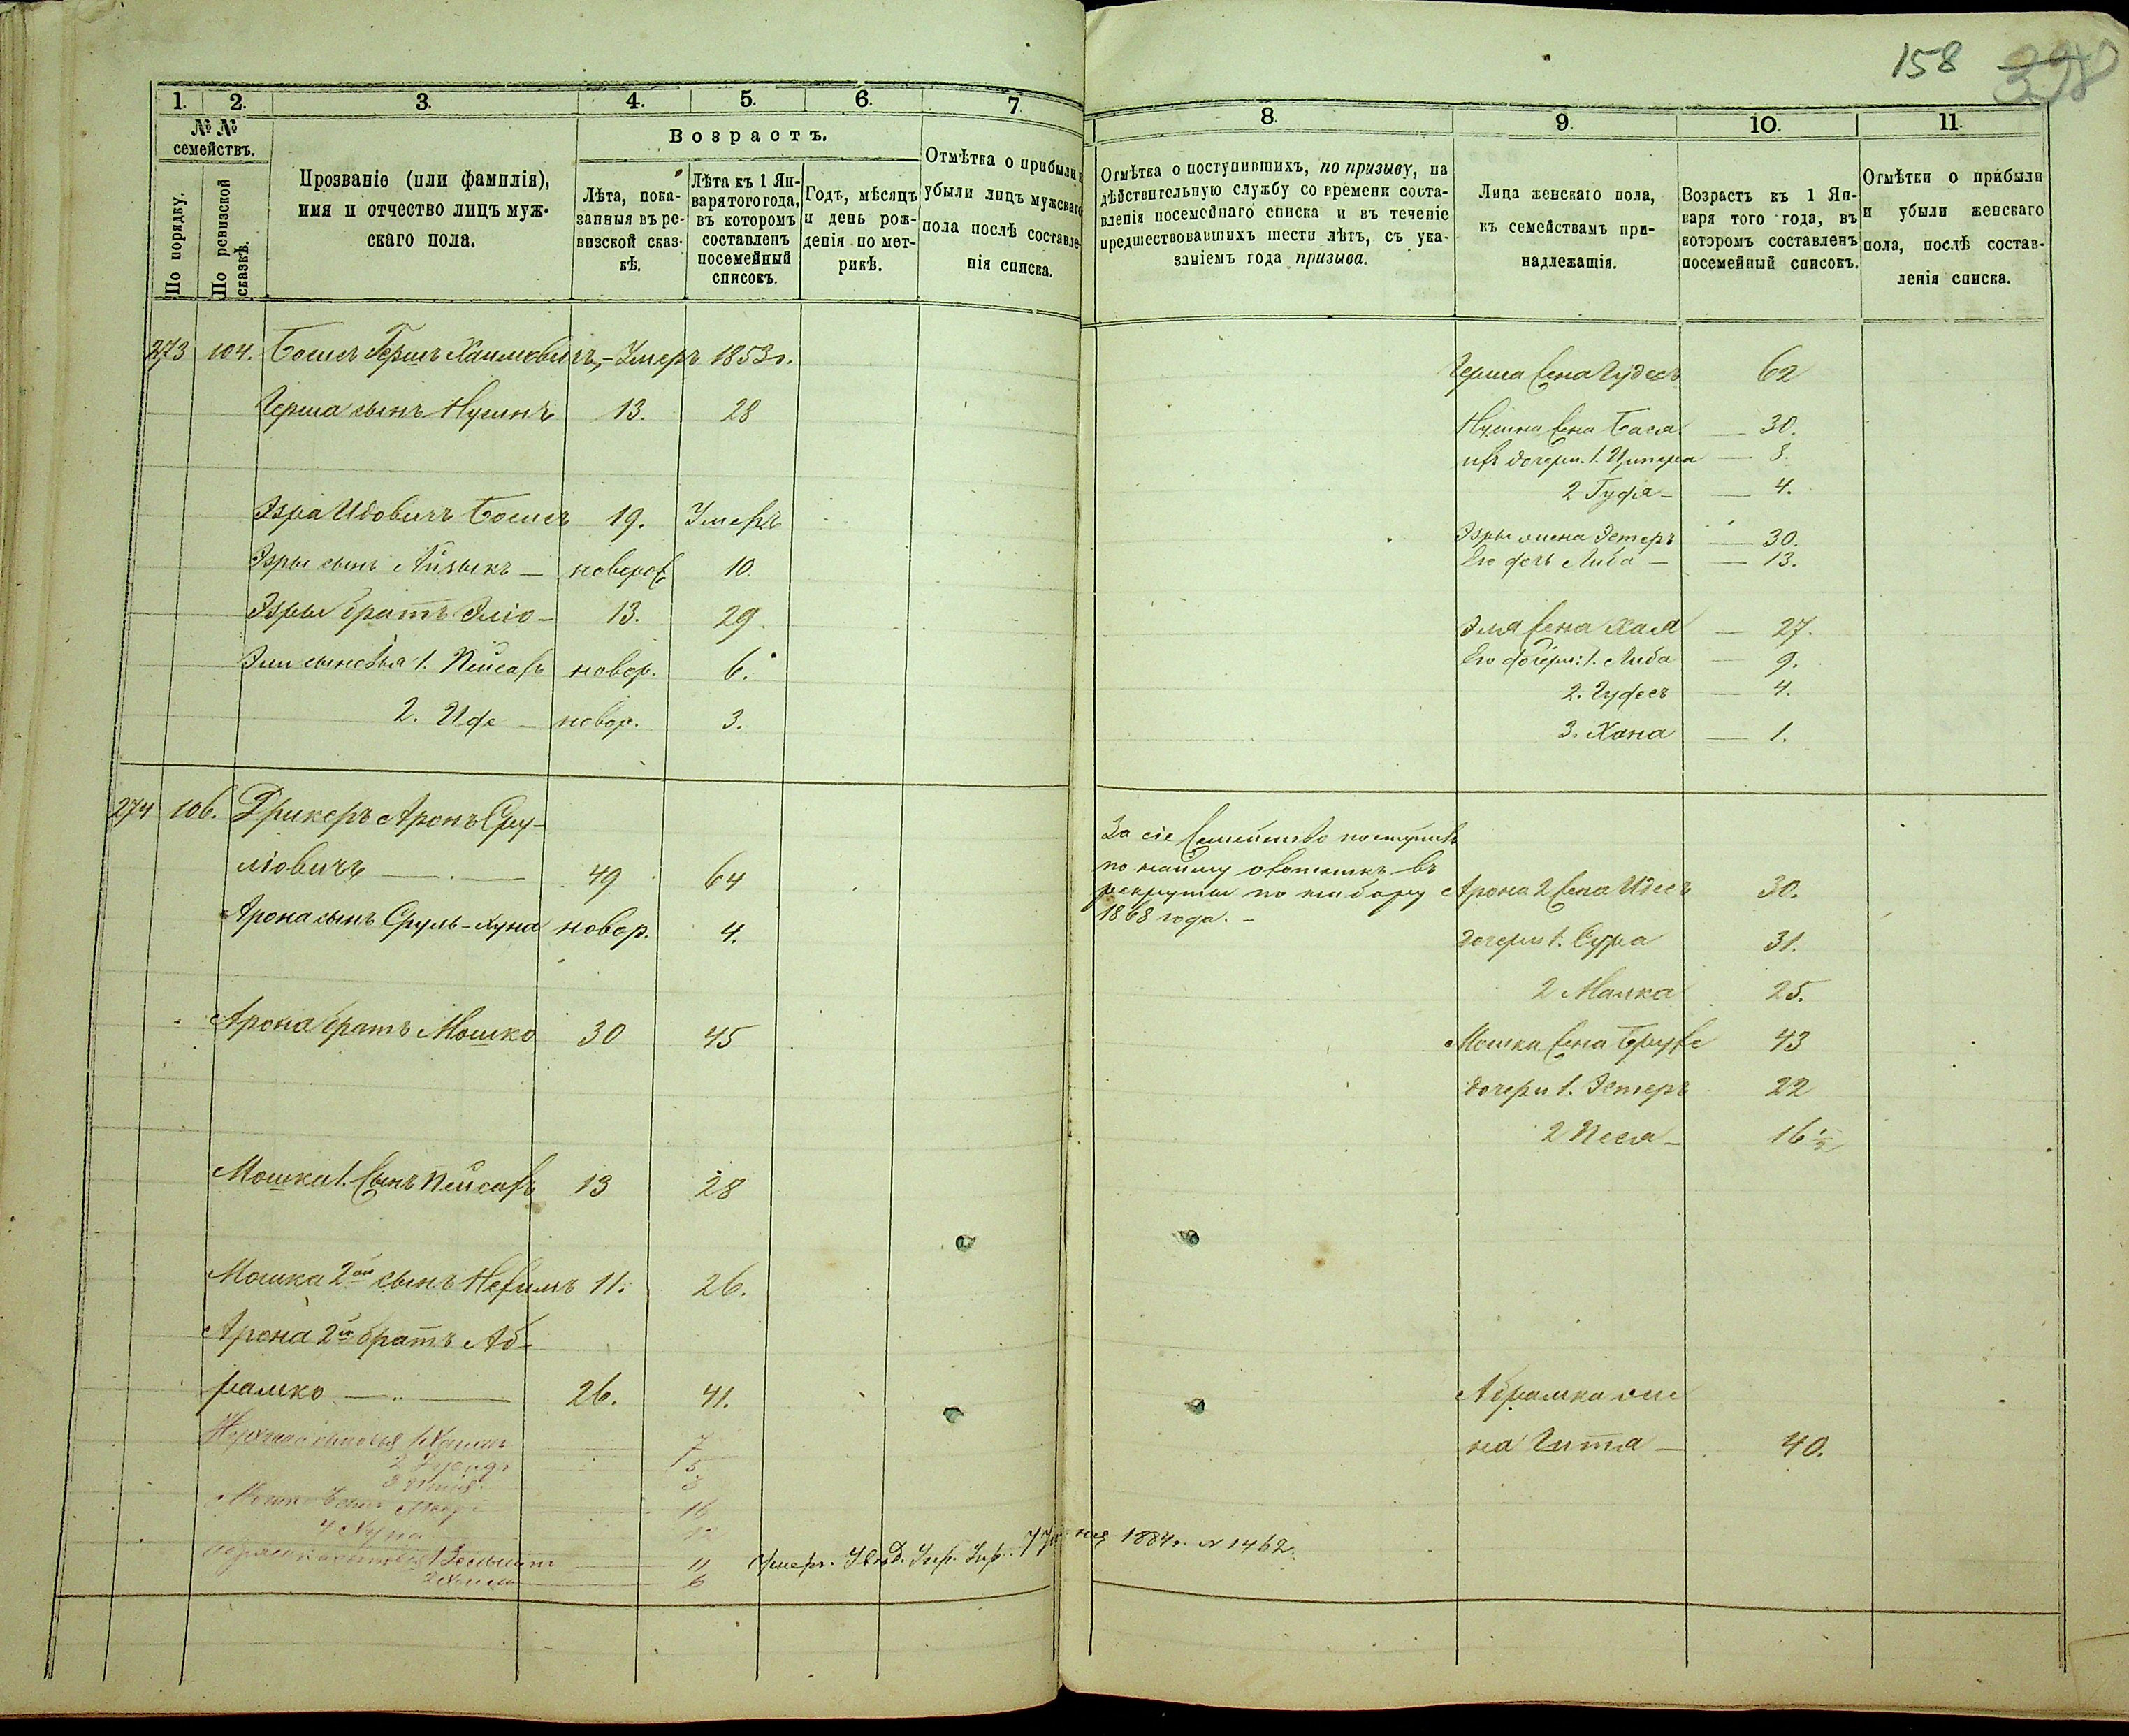 158
398
1.
2.
3.
4.
5.
6.
7
№ №
семействъ.
По порядку.
По ревизской
сказкѣ.
Прозваніе (или фамилія),
имя и отчество лицъ муж-
скаго пола.
Возрастъ.
Лѣта, пока-
занныя въ ре-
визской сказ-
кѣ.
Лѣта къ 1 Ян-
варя того года,
въ которомъ
составленъ
посемейный
списокъ.
Годъ, мѣсяцъ
и день рож-
денія по мет-
рикѣ.
Отмѣтка о прибыли и
убыли лицъ мужскаго
пола послѣ составле-
нія списка.
273 104. Бошеъ Гершъ Хаимовичъ - Умеръ 1853 г.
Герша сынъ Нусинъ 13. 28
Эзра Идовичъ Бошеъ 19. Умеръ
Эзры сынъ Айзыкъ — новорож 10.
Эзры братъ Эліо - 13. 29.
Эли сыновья 1. Пейсахъ новор. 6.
2. Иде — новор. 3.
274 106. Дрикеръ Аронъ Сру-
ліовичъ — 49 64
Арона сынъ Сруль-Хуна новор. 4.
Арона братъ Мошко 30 45
Мошка 1. Сынъ Пейсахъ 13 28
Мошка 2ой сынъ Нехимъ 11. 26.
Арона 2й братъ Аб-
рамко — 26. 41.
сыновья 1
7
5
3
Мошко
16
4 Хуна 12
сыновья 1
11 Умеръ. Ув. Д. 1884 г. № 1462.
2
6
8.
9.
10.
11.
Отмѣтка о поступившихъ, по призыву, на
дѣйствительную службу со времени соста-
вленія посемейнаго списка и въ теченіе
предшествовавшихъ шести лѣтъ, съ ука-
заніемъ года призыва.
Лица женскаго пола,
къ семействамъ при-
надлежащія.
Возрастъ къ 1 Ян-
варя того года, въ
которомъ составленъ
посемейный списокъ.
Отмѣтки о прибыли
и убыли женскаго
пола, послѣ состав-
ленія списка.
Герша жена Гудесъ 62
Нусина жена Бася — 30.
ихъ дочери. 1. Ципера — 8.
2 Гудя — 4.
Эзры жена Эстеръ — 30.
Его дочь Либа — 13.
Эля жена Хая — 27.
Его дочери: 1. Либа — 9.
2. Гудесъ — 4.
3. Хана — 1.
За сіе Семейство поступилъ
по найму охотникъ въ
рекруты по набору
1868 года. -
Арона 2 жена Идесъ 30.
дочери 1. Сура 31.
2 Малка 25.
Мошка жена Брухе 43
дочери 1. Эстеръ 22
2 Песя — 16 ½
Абрамка же
на Гитля — 40.